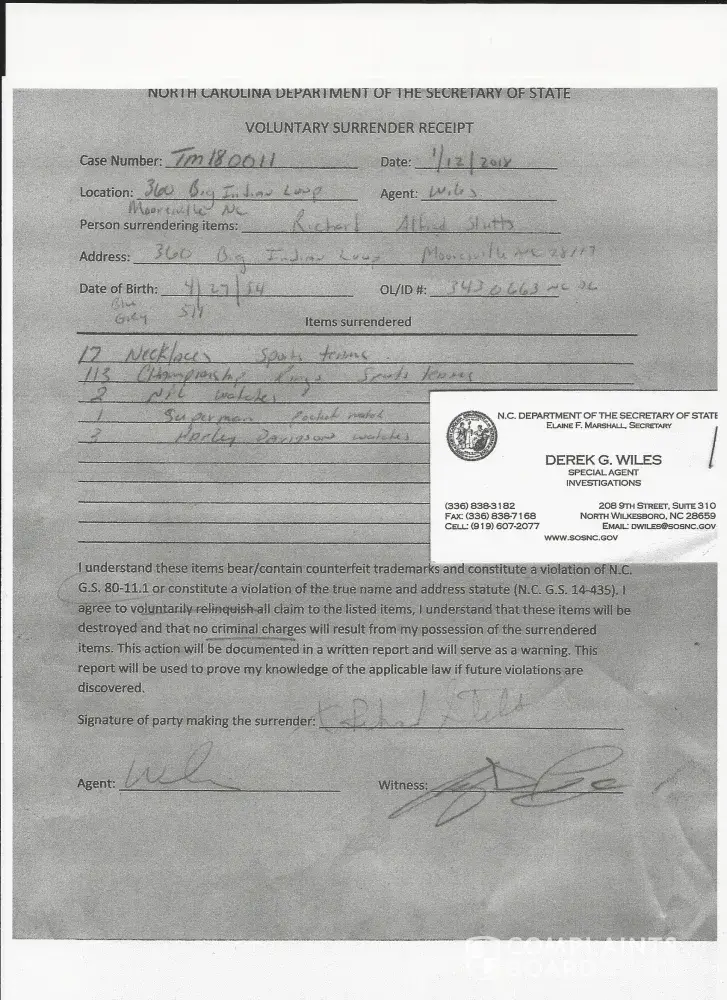 NORTH CAROLINA DEPARTMENT OF THE SECRETARY OF STATE
VOLUNTARY SURRENDER RECEIPT
Case Number: TM180011 Date: 1/12/2018
Location: 360 Big Indian Loop Agent: Wiles
Mooresville NC
Person surrendering items: Richard Alfred Stutts
Address: 360 Big Indian Loop Mooresville NC 28117
Date of Birth: 4/27/54 OL/ID #: 3430663 NC DL
Blue
Grey 511
Items surrendered
17 Necklaces Sports teams
113 Championship Rings Sports teams
2 NFL watches
1 Superman Pocket watch
3 Harley Davidson watches
N.C. DEPARTMENT OF THE SECRETARY OF STATE
ELAINE F. MARSHALL, SECRETARY
DEREK G. WILES
SPECIAL AGENT
INVESTIGATIONS
(336) 838-3182 208 9TH STREET, SUITE 310
FAX: (336) 838-7168 NORTH WILKESBORO, NC 28659
CELL: (919) 607-2077 EMAIL: DWILES@SOSNC.GOV
WWW.SOSNC.GOV
I understand these items bear/contain counterfeit trademarks and constitute a violation of N.C.
G.S. 80-11.1 or constitute a violation of the true name and address statute (N.C. G.S. 14-435). I
agree to voluntarily relinquish all claim to the listed items, I understand that these items will be
destroyed and that no criminal charges will result from my possession of the surrendered
items. This action will be documented in a written report and will serve as a warning. This
report will be used to prove my knowledge of the applicable law if future violations are
discovered.
Signature of party making the surrender:
Agent: Witness:
COMPLAINTS
BOARD